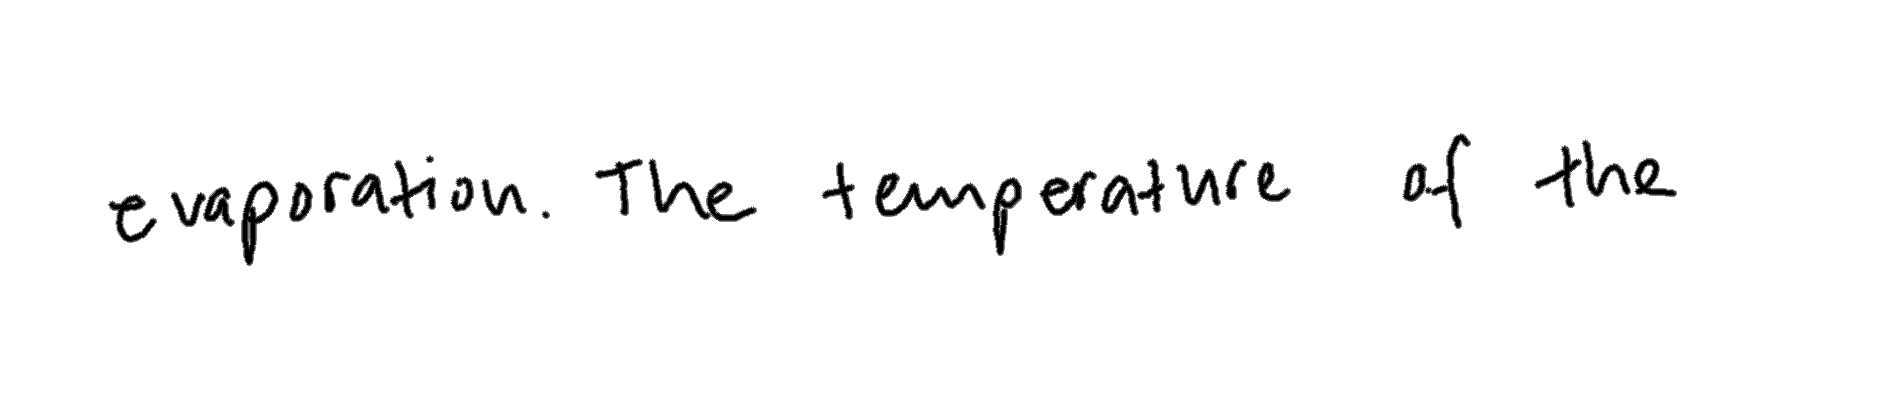 evaporation. The temperature of the